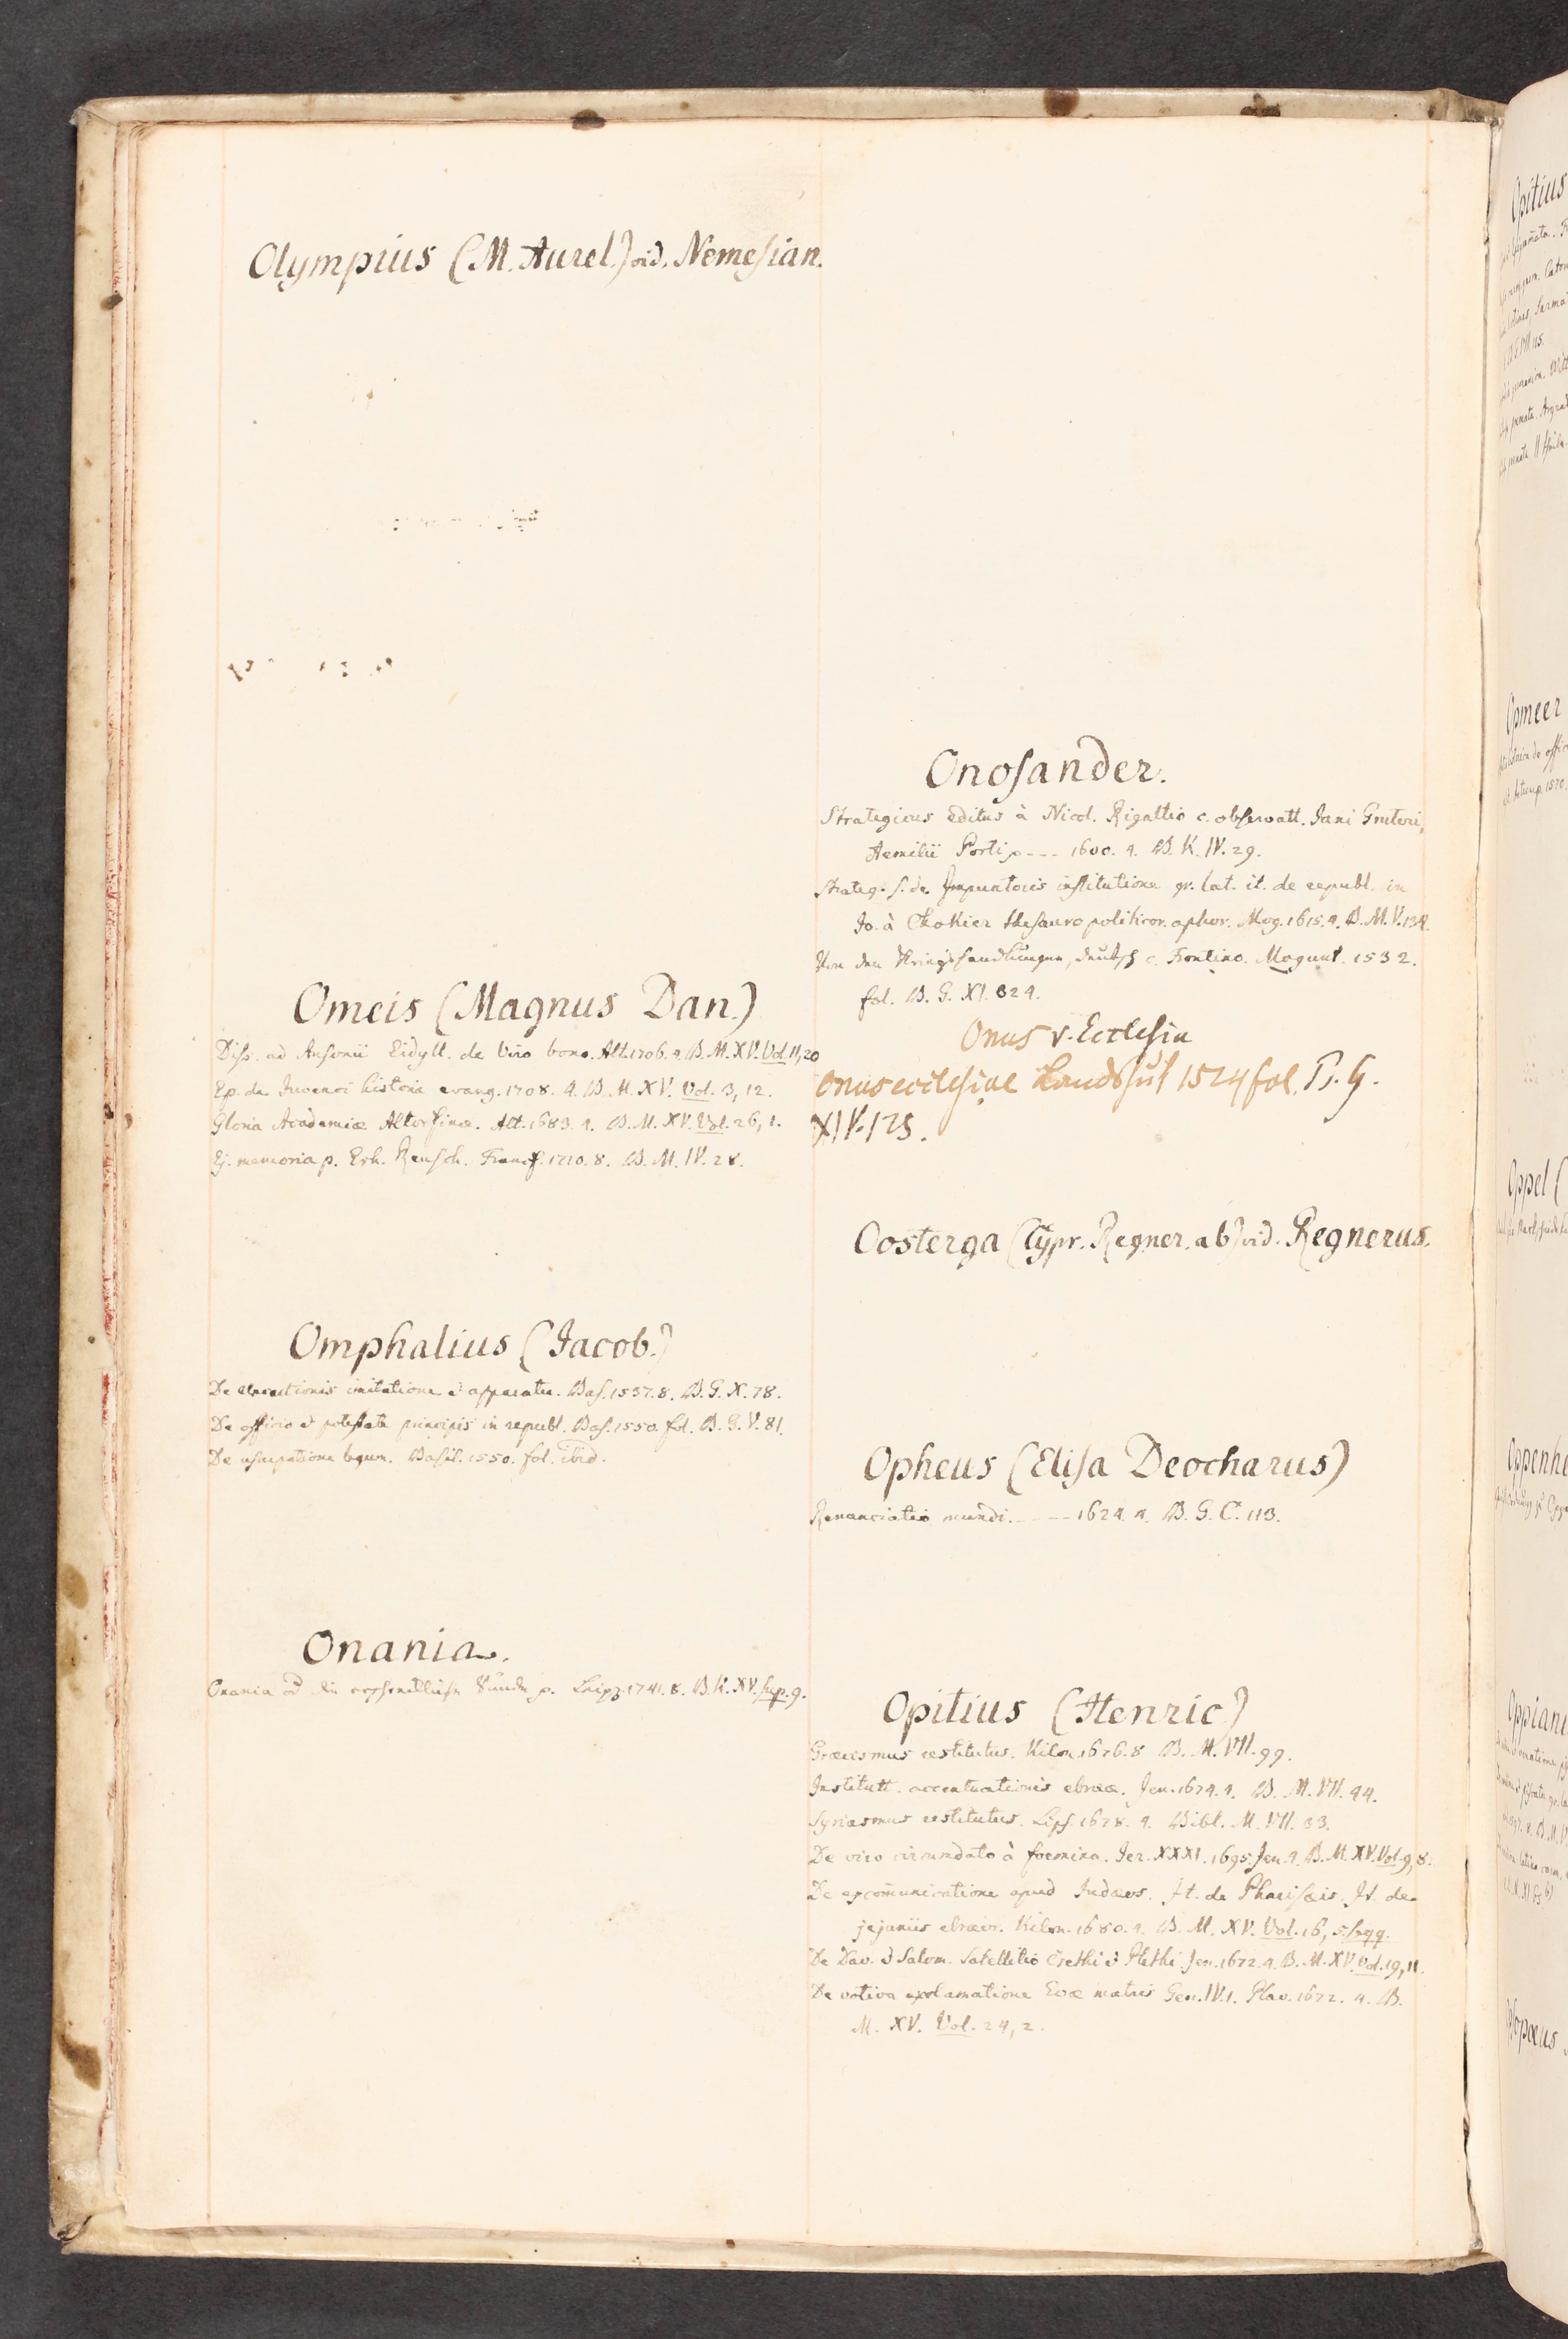 Olympius (M. Aurel.) vid. Nemesian.
Omeis (Magnus Dan.)
Diss. ad Ausonii Eidyll. de Viro bono. Alt. 1706. 4. B. M. XV. Vol. 11, 20
Ep. de Juvenci historia evang. 1708. 4. B. M. XV. Vol. 3, 12.
Gloria Academiæ Altorfinæ. Alt. 1683. 4. B. M. XV. Vol. 26, 1.
Ej. memoria p. Erh. Reusch. Francf. 1710. 8. B. M. IV. 28.
Omphalius (Jacob.)
De elocutionis imitatione & apparatu. Bas. 1537. 8. B. G. X. 78.
De officio & potestate principis in republ. Bas. 1550. fol. B. G. V. 81.
De usurpatione legum. Basil. 1550. fol. ibid.
Onania.
Onania od die Sünde p. Leipz. 1741. 8. B. K. XV. sup. 9.
Onosander.
Strategicus editus à Nicol. Rigaltio c. observatt. Jani Gruteri,
Aemilii Porti p --- 1600. 4. B. K. IV. 29.
Strateg. s. de Imperatoris institutione gr. lat. it. de republ. in
Jo. à Chokier thesauro politicor. aphor. Mog. 1615. 4. B. M. V. 134.
Von den Kriegshandlungen, deutsch c. Frontino. Magunt. 1532.
fol. B. G. XI. 324.
Onus v. Ecclesia
Onus ecclesiae Landshut 1524 fol. B. G.
XIV. 123.
Oosterga (Cypr. Regner. ab) vid. Regnerus.
Opheus (Elisa Deocharus)
Renunciatio mundi. ---- 1624. 4. B. G. C. 113.
Opitius (Henric.)
Græcismus restitutus. Kilon. 1676. 8 B. M. VII. 99.
Institutt. accentuationis ebrææ. Jen. 1674. 4. B. M. VII. 44.
Syriasmus restitutus. Lips. 1678. 4. Bibl. M. VII. 33.
De viro circumdato à foemina. Jer. XXXI. 1695. Jen. 4. B. M. XV. Vol. 9, 8.
De excom̄unicatione apud Judæos. It. de Pharisæis. It. de
jejuniis ebræor. Kilon. 1680. 4. B. M. XV. Vol. 16, 5. seqq.
De Dav. & Salom. Satellitio Crethi & Plethi. Jen. 1672. 4. B. M. XV. Vol. 19, 11.
De votiva exclamatione Evæ matris Gen. IV. 1. Plav. 1672. 4. B.
M. XV. Vol. 24, 2.